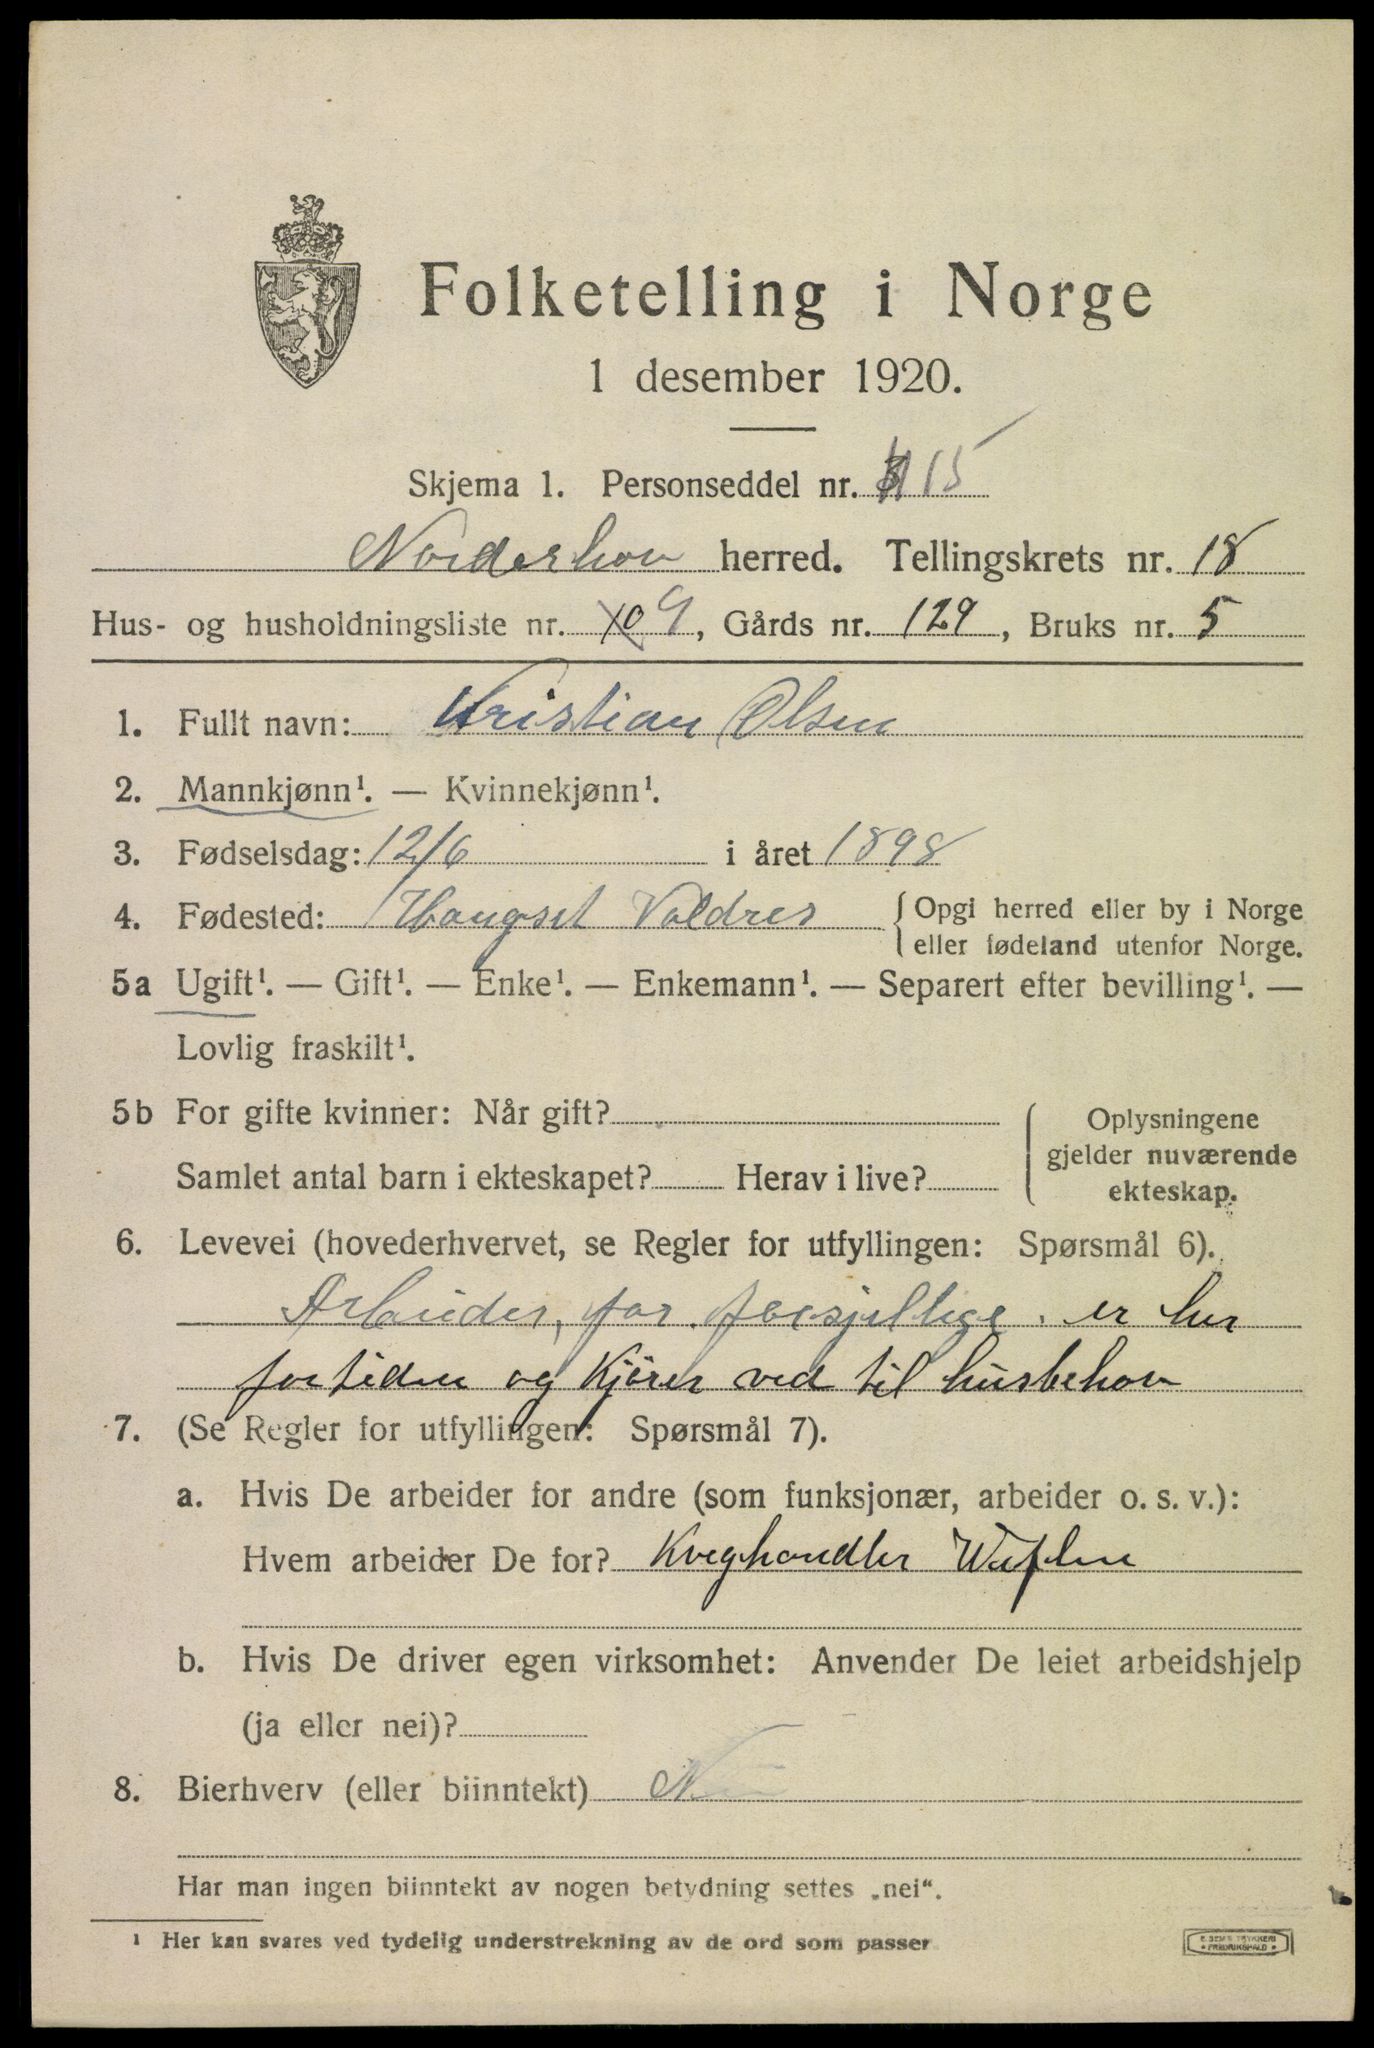 Folketelling i Norge
1 desember 1920.
Skjema 1. Personseddel nr. 15
Norderhov herred. Tellingskrets nr. 18
Hus- og husholdningsliste nr. 10 9, Gårds nr. 129, Bruks nr. 5
1. Fullt navn: Kristian Olsen
2. Mannkjønn¹. — Kvinnekjønn¹.
3. Fødselsdag: 12/6 i året 1898
4. Fødested: Haugset Valdres { Opgi herred eller by i Norge
eller fødeland utenfor Norge.
5a Ugift¹. — Gift¹. — Enke¹. — Enkemann¹. — Separert efter bevilling¹. —
Lovlig fraskilt¹.
5b For gifte kvinner: Når gift?
Samlet antal barn i ekteskapet? Herav i live?
{ Oplysningene
gjelder nuværende
ekteskap.
6. Levevei (hovederhvervet, se Regler for utfyllingen: Spørsmål 6).
Arbeider, for forsjellige. er her
fortiden og Kjörer ved til husbehov
7. (Se Regler for utfyllingen: Spørsmål 7).
a. Hvis De arbeider for andre (som funksjonær, arbeider o. s. v.):
Hvem arbeider De for? Kveghandler
b. Hvis De driver egen virksomhet: Anvender De leiet arbeidshjelp
(ja eller nei)?
8. Bierhverv (eller biinntekt) Nei
Har man ingen biinntekt av nogen betydning settes „nei“.
¹ Her kan svares ved tydelig understrekning av de ord som passer